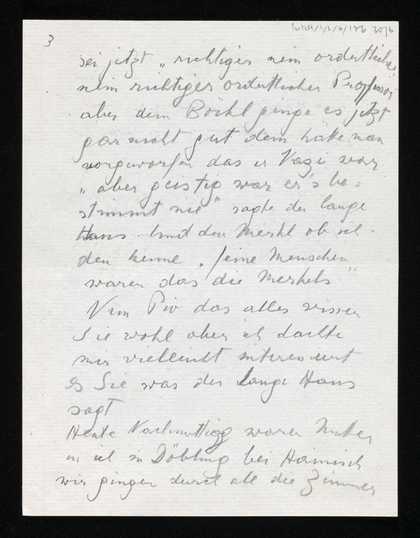 3
sei jetzt „richtiger nein ordentlicher
nein richtiger ordentlicher Professor
aber dem Böckl ginge es jetzt
gar nicht gut dem hätte man
vorgeworfen das er Nazi war
„aber geistig war er's be-
stimmt nie" sagte der lange
Hans. Und den Merkl ob ich
den kenne „feine Menschen
waren das die Merkels"
Nun Pio das alles wissen
Sie wohl aber ich dachte
mir vielleicht interessiert
es Sie was der lange Hans
sagt
Heute Nachmittag waren Mutter
u. ich in Döbling bei Hainisch
wir gingen durch all die Zimmer